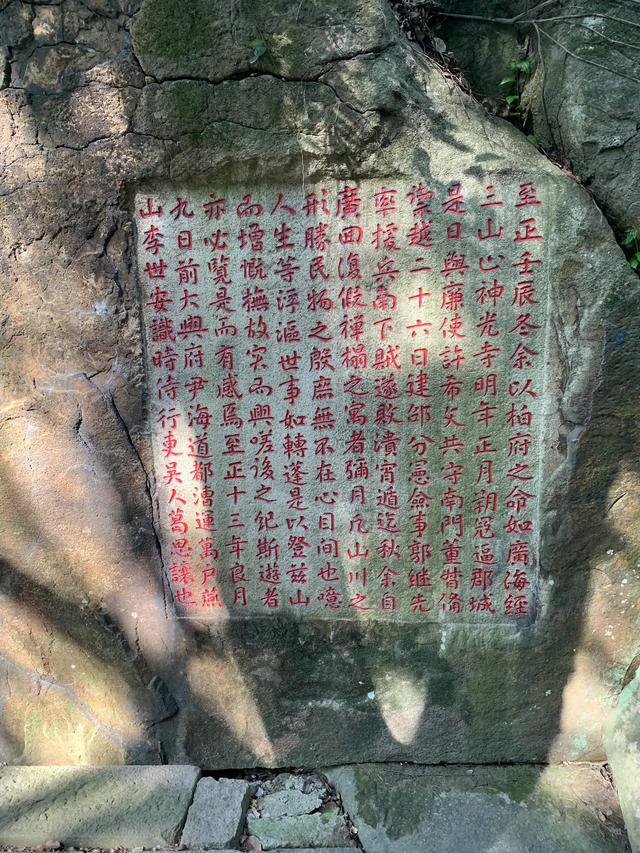 至正壬辰冬余以柏府之命如廣海經
三山止神光寺明年正月朔冦逼郡城
是日與廉使許希文共守南門董督備
禦越二十六日建邵分憲僉事郭继先
率援兵南下賊遂敗潰宵遁迄秋余自
廣回復假禪榻之寓者彌月凡山川之
形勝民物之殷庶無不在心目間也噫
人生等浮漚世事如轉蓬是以登茲山
而增慨撫故实而興嗟後之紀斯遊者
亦必覽是而有感焉至正十三年良月
九日前大興府尹海道都漕運萬户燕
山李世安識時侍行吏吳人葛思讓也